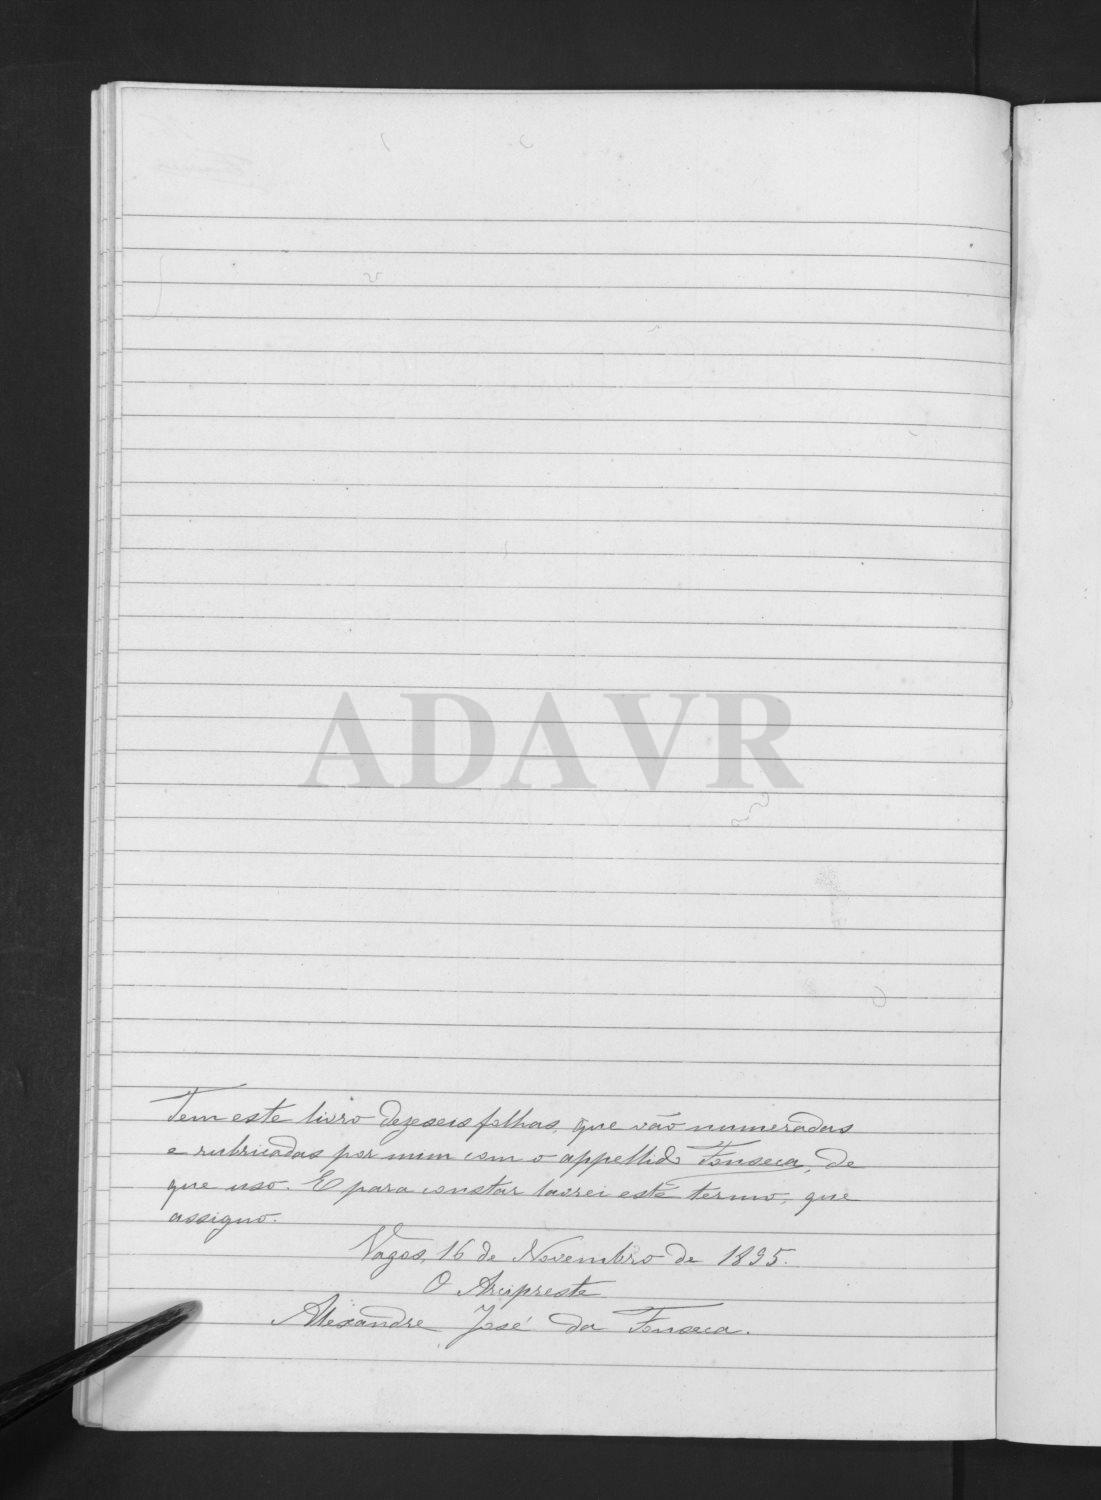 ADAVR
Tem este livro dezeseis folhas, que vão numeradas
e rubricadas por mim com o appellido Fonseca, de
que uso. E para constar lavrei este termo, que
assigno.
Vagos, 16 de Novembro de 1895.
O Arcipreste
Alexandre José da Fonseca.